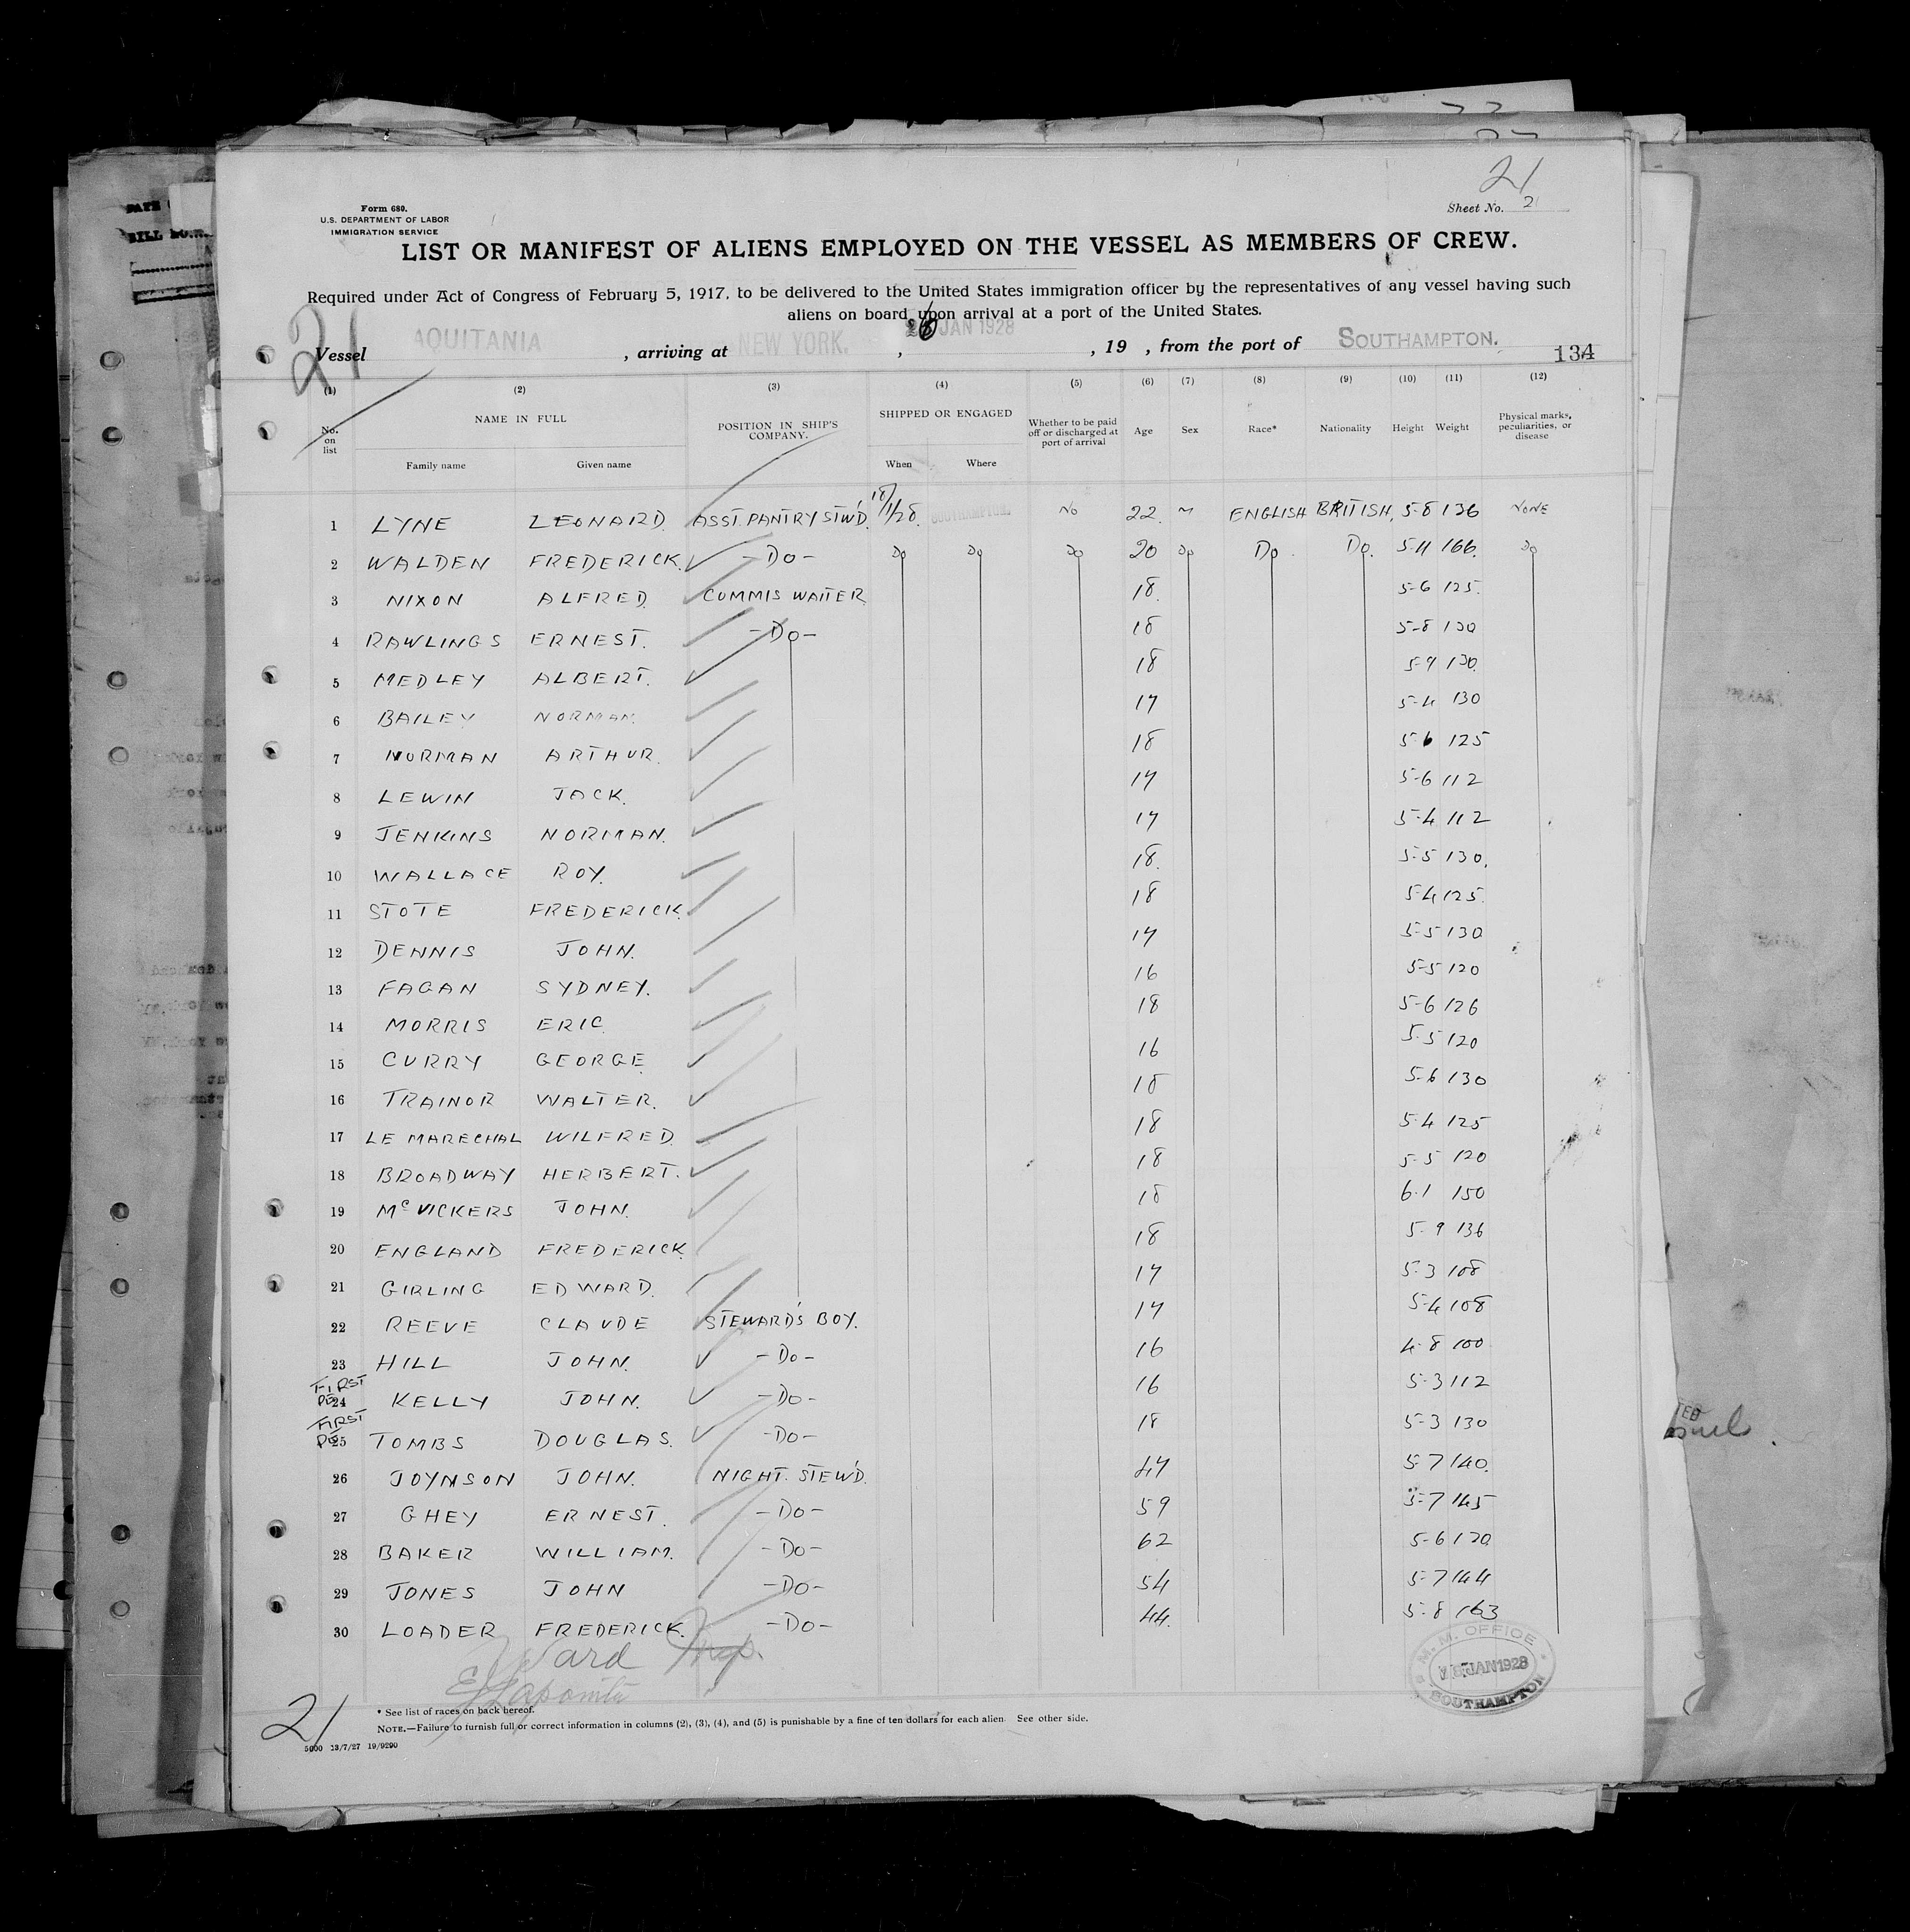 21
Form 680.
U.S. DEPARTMENT OF LABOR
IMMIGRATION SERVICE
Sheet No. 2
LIST OR MANIFEST OF ALIENS EMPLOYED ON THE VESSEL AS MEMBERS OF CREW.
Required under Act of Congress of February 5, 1917, to be delivered to the United States immigration officer by the representatives of any vessel having such
aliens on board upon arrival at a port of the United States.
21
Vessel AQUITANIA, arriving at NEW YORK., JAN 1928, 19 , from the port of SOUTHAMPTON.
134
(1) (2) (3) (4) (5) (6) (7) (8) (9) (10) (11) (12)
No. on list NAME IN FULL POSITION IN SHIP'S COMPANY. SHIPPED OR ENGAGED Whether to be paid off or discharged at port of arrival Age Sex Race* Nationality Height Weight Physical marks, peculiarities, or disease
Family name Given name When Where
1 LYNE LEONARD. ASST. PANTRY STW'D. 18/1/28. SOUTHAMPTON. NO 22. M ENGLISH BRITISH. 5-8 136 NONE
2 WALDEN FREDERICK. -DO- DO DO DO 20 DO DO. DO. 5-11 166. DO
3 NIXON ALFRED. COMMIS WAITER 18. 5-6 125.
4 RAWLINGS ERNEST. -DO- 18 5-8 130
5 MEDLEY ALBERT. 18 5-9 130.
6 BAILEY NORMAN. 17 5-4 130
7 NORMAN ARTHUR. 18 5-6 125
8 LEWIN JACK. 17 5-6 112
9 JENKINS NORMAN. 17 5-4 112
10 WALLACE ROY. 18. 5-5 130.
11 STOTE FREDERICK. 18 5-4 125.
12 DENNIS JOHN. 17 5-5 130
13 FAGAN SYDNEY. 16 5-5 120
14 MORRIS ERIC. 18 5-6 126
15 CURRY GEORGE 16 5-5 120
16 TRAINOR WALTER. 18 5-6 130
17 LE MARECHAL WILFRED. 18 5-4 125
18 BROADWAY HERBERT. 18 5-5 120
19 McVICKERS JOHN. 18 6-1 150
20 ENGLAND FREDERICK. 18 5-9 136
21 GIRLING EDWARD. 17 5-3 108
22 REEVE CLAUDE STEWARD'S BOY. 17 5-4 108
23 HILL JOHN. -DO- 16 4-8 100
FIRST
24 KELLY JOHN. -DO- 16 5-3 112
FIRST
25 TOMBS DOUGLAS. -DO- 18 5-3 130
26 JOYNSON JOHN. NIGHT. STEW'D. 47 5-7 140.
27 GHEY ERNEST. -DO- 59 5-7 145
28 BAKER WILLIAM. -DO- 62 5-6 120
29 JONES JOHN -DO- 54 5-7 144
30 LOADER FREDERICK. -DO- 44. 5-8 163
Ward Insp.
M.M. OFFICE
JAN 1928
SOUTHAMPTON
21
* See list of races on back hereof.
NOTE.—Failure to furnish full or correct information in columns (2), (3), (4), and (5) is punishable by a fine of ten dollars for each alien. See other side.
5000 13/7/27 19/9290